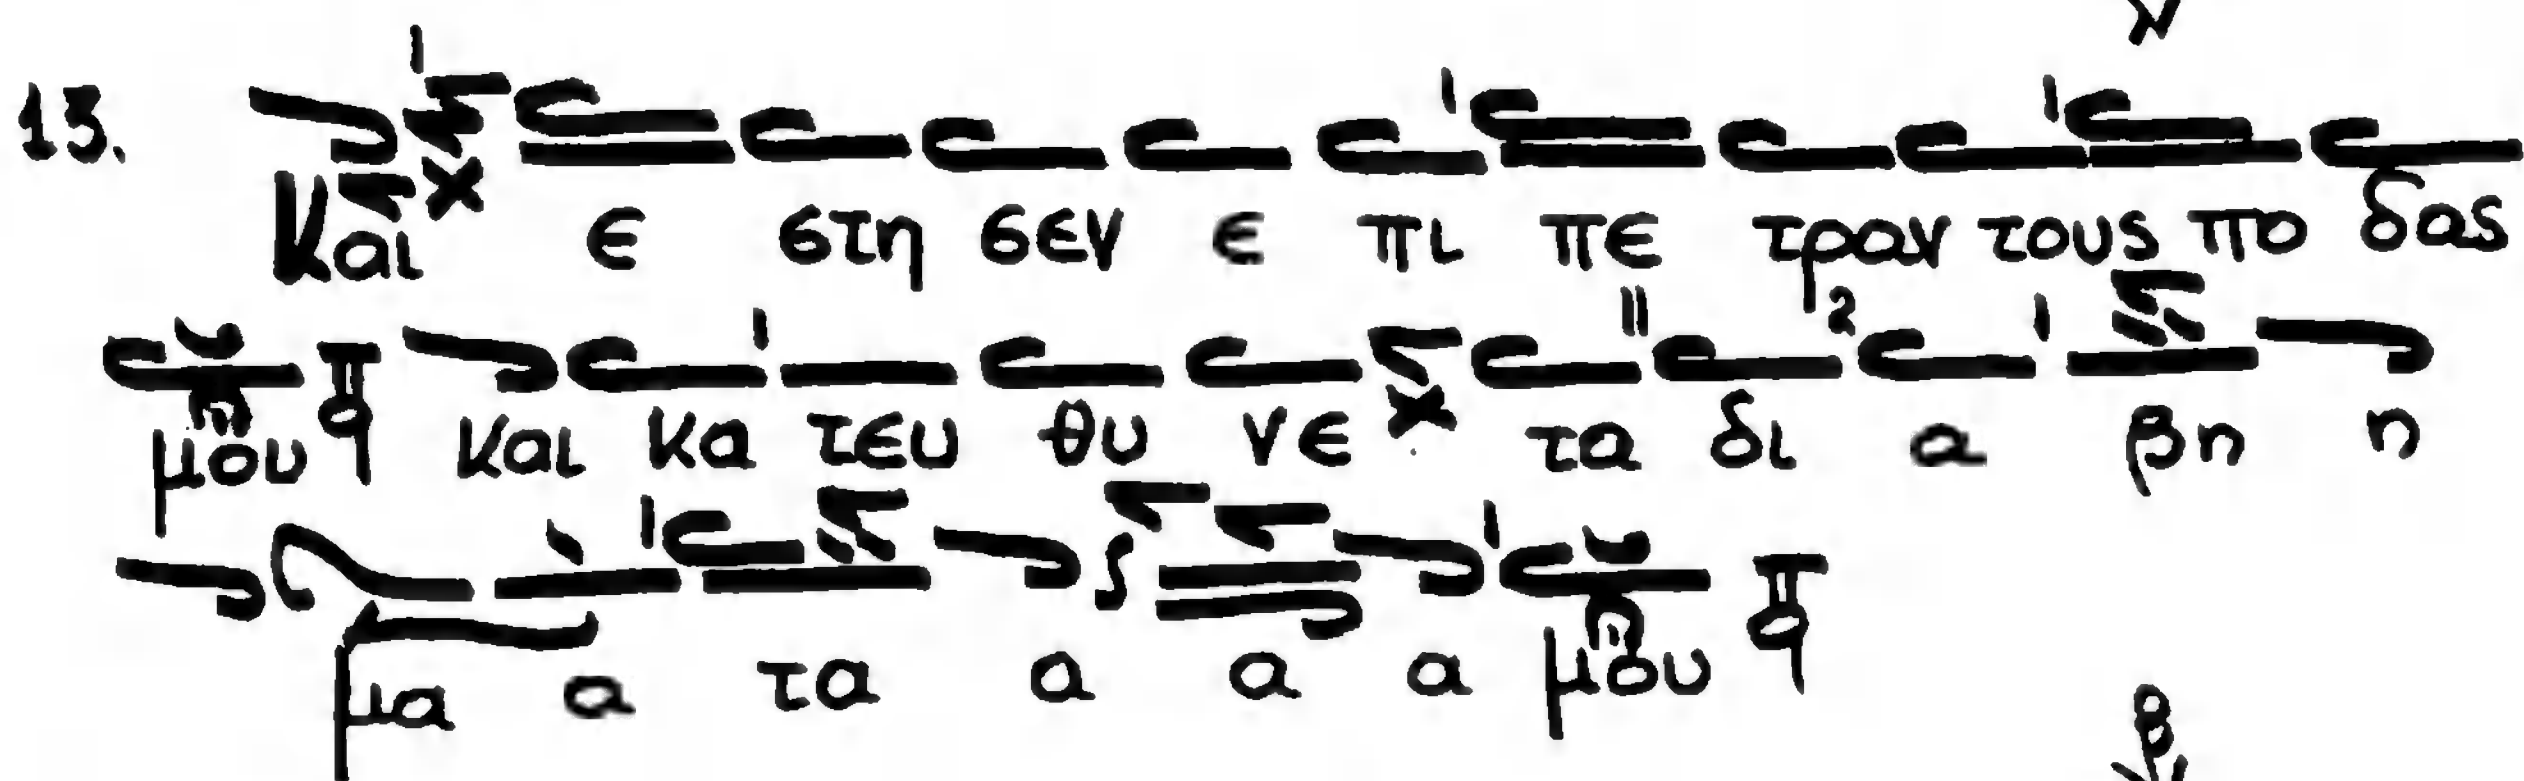 13. Και ε στη σεν ε πι πε τραν τους πο δας
μου και κα τευ θυ νε τα δι α βη η
μα α τα α α α μου